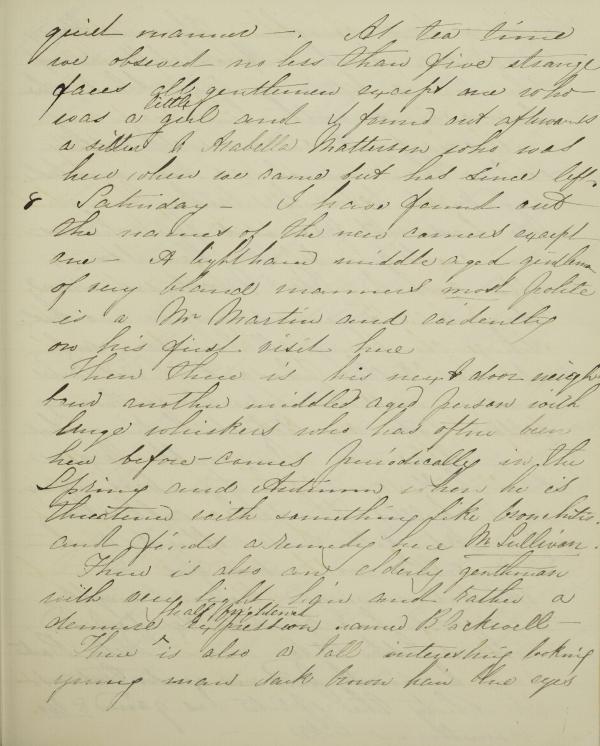 quiet manner —. At tea time
we observed no less than five strange
faces all gentlemen except one who
was a little girl and I found out afterwards
a sister to Arabella Matterson who was
here when we came but has since left.
8 Saturday — I have found out
the names of the new comers except
one — A light haird middle aged gentleman
of very bland manners most polite
is a Mr Martin and evidently
on his first visit here
Then there is his next door neigh
bour another middle aged person with
large whiskers who has often been
here before — comes periodically in the
Spring and Autumn when he is
threatened with something like bronchitis.
and finds a remedy here Mr Sullivan.
There is also an elderly gentleman
with very light and rather a
demure half frightened expression named Blackwell —
There is also a tall interesting looking
young man dark brown hair blue eyes